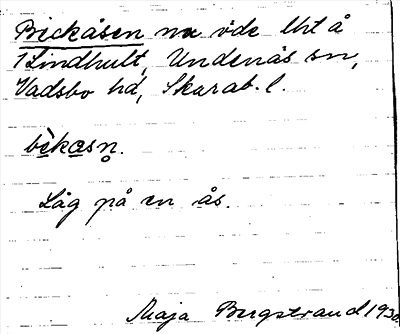 Beckåsen nu öde lht å
1 Lindhult, Undenäs sn,
Vadsbo hd, Skarab. l.
bèkasn̥.
Låg på en ås.
Maja Bergstrand 1930